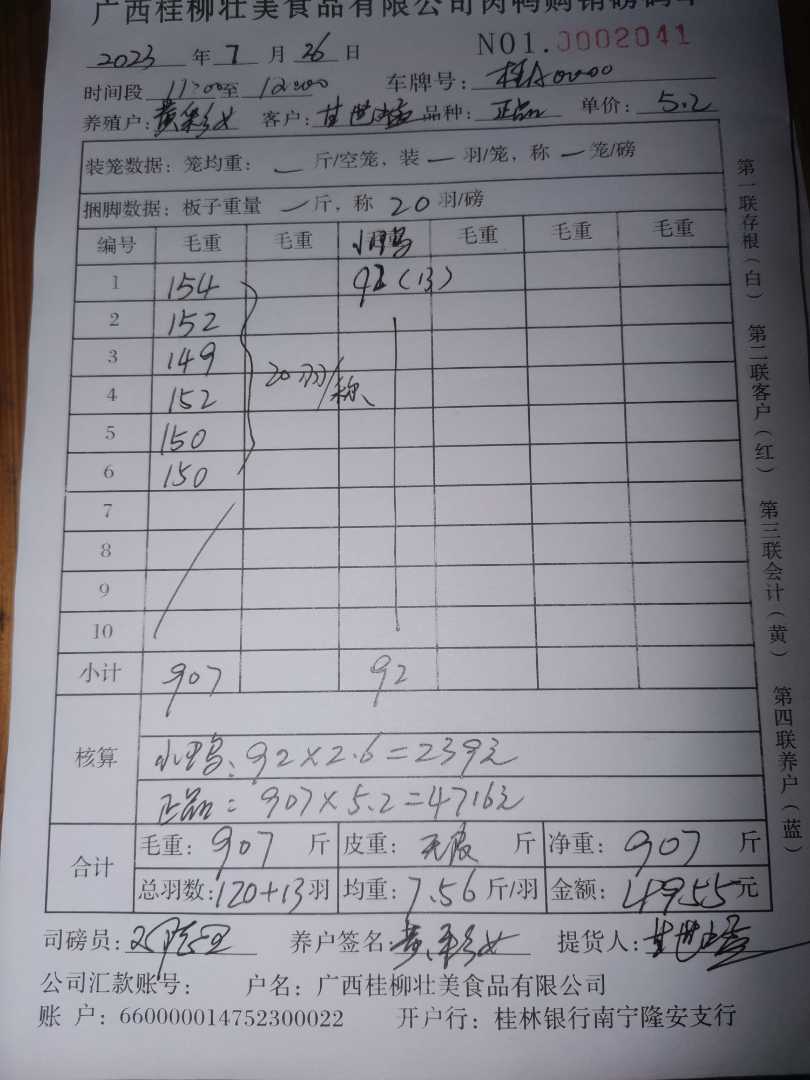 广西桂柳壮美食品有限公司肉鸭购销磅码单
2023 年 7 月 26 日 NO1.0002041
时间段 11:00至 12:00 车牌号: 桂A00000
养殖户: 黄彩 客户: 甘世 品种: 正品 单价: 5.2
装笼数据: 笼均重: 一 斤/空笼, 装 一 羽/笼, 称 一 笼/磅
捆脚数据: 板子重量 一 斤, 称 20 羽/磅
编号 毛重 毛重 小鸭 毛重 毛重 毛重
1 154 92(13)
2 152
3 149
4 152 20羽/称
5 150
6 150
7
8
9
10
小计 907 92
核算
小鸭: 92×2.6=239元
正品: 907×5.2=4716元
合计
毛重: 907 斤 皮重: 斤 净重: 907 斤
总羽数: 120+13 羽 均重: 7.56 斤/羽 金额: 4955 元
司磅员: 养户签名: 黄彩 提货人: 甘世
公司汇款账号: 户名: 广西桂柳壮美食品有限公司
账 户: 660000014752300022 开户行: 桂林银行南宁隆安支行
第一联存根(白) 第二联客户(红) 第三联会计(黄) 第四联养户(蓝)